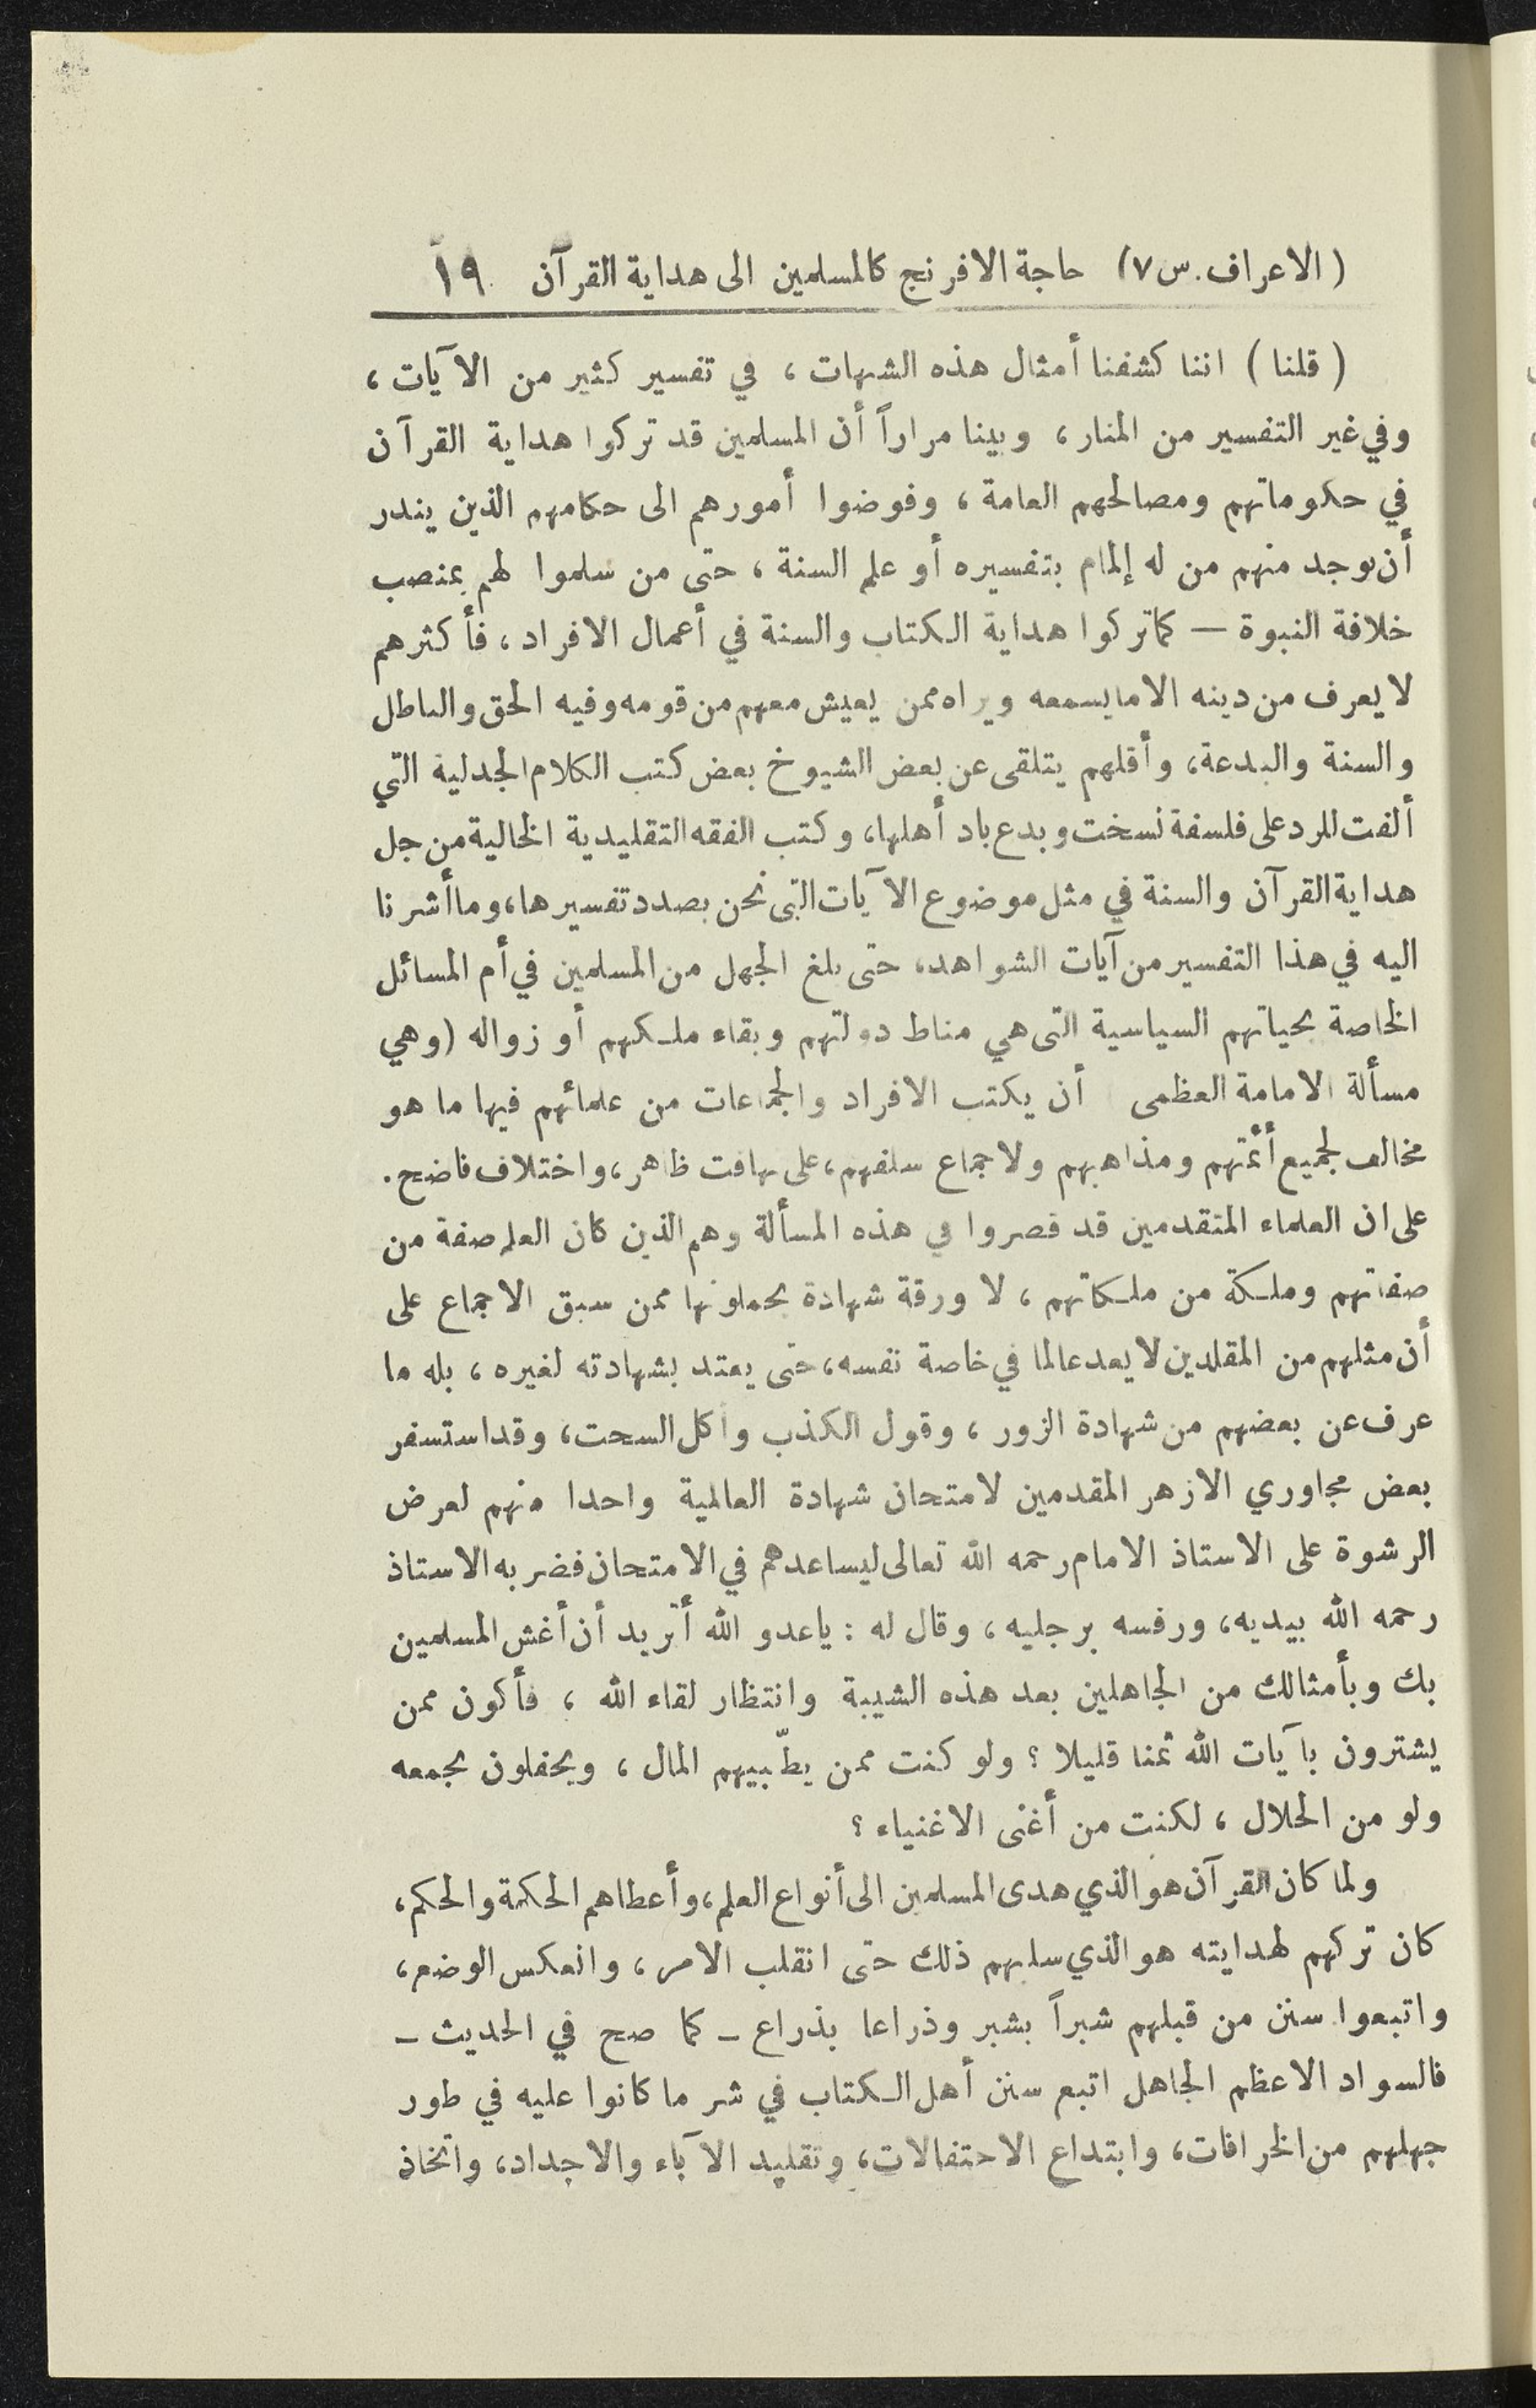 (الاعراف. س ٧) حاجة الافرنج كالمسلمين الى هداية القرآن ١٩
(قلنا) اننا كشفنا أمثال هذه الشبهات، في تفسير كثير من الآيات،
وفي غير التفسير من المنار، وبينا مراراً أن المسلمين قد تركوا هداية القرآن
في حكوماتهم ومصالحهم العامة، وفوضوا أمورهم الى حكامهم الذين يندر
أن يوجد منهم من له إلمام بتفسيره أو علم السنة، حتى من سلموا لهم بمنصب
خلافة النبوة — كما تركوا هداية الكتاب والسنة في أعمال الافراد، فأكثرهم
لا يعرف من دينه الا ما يسمعه ويراه ممن يعيش معهم من قومه وفيه الحق والباطل
والسنة والبدعة، وأقلهم يتلقى عن بعض الشيوخ بعض كتب الكلام الجدلية التي
ألفت للرد على فلسفة نسخت وبدع باد أهلها، وكتب الفقه التقليدية الخالية من جل
هداية القرآن والسنة في مثل موضوع الآيات التي نحن بصدد تفسيرها، وما أشرنا
اليه في هذا التفسير من آيات الشواهد، حتى بلغ الجهل من المسلمين في أم المسائل
الخاصة بحياتهم السياسية التي هي مناط دولتهم وبقاء ملكهم أو زواله (وهي
مسألة الامامة العظمى أن يكتب الافراد والجماعات من علمائهم فيها ما هو
مخالف لجميع أئمتهم ومذاهبهم ولاجماع سلفهم، على تهافت ظاهر، واختلاف فاضح.
على ان العلماء المتقدمين قد قصروا في هذه المسألة وهم الذين كان العلم صفة من
صفاتهم وملكة من ملكاتهم، لا ورقة شهادة يحملونها ممن سبق الاجماع على
أن مثلهم من المقلدين لا يعد عالما في خاصة نفسه، حتى يعتد بشهادته لغيره، بله ما
عرف عن بعضهم من شهادة الزور، وقول الكذب وأكل السحت، وقد استسفر
بعض مجاوري الازهر المقدمين لامتحان شهادة العالمية واحدا منهم لعرض
الرشوة على الاستاذ الامام رحمه الله تعالى ليساعدهم في الامتحان فضربه الاستاذ
رحمه الله بيديه، ورفسه برجليه، وقال له : ياعدو الله أتريد أن أغش المسلمين
بك وبأمثالك من الجاهلين بعد هذه الشيبة وانتظار لقاء الله ، فأكون ممن
يشترون بآيات الله ثمنا قليلا ؟ ولو كنت ممن يطّبيهم المال ، ويحفلون بجمعه
ولو من الحلال ، لكنت من أغنى الاغنياء ؟
ولما كان القرآن هو الذي هدى المسلمين الى أنواع العلم، وأعطاهم الحكمة والحكم،
كان تركهم لهدايته هو الذي سلبهم ذلك حتى انقلب الامر، وانعكس الوضع،
واتبعوا سنن من قبلهم شبراً بشبر وذراعا بذراع ـ كما صح في الحديث ـ
فالسواد الاعظم الجاهل اتبع سنن أهل الكتاب في شر ما كانوا عليه في طور
جهلهم من الخرافات، وابتداع الاحتفالات، وتقليد الآباء والاجداد، واتخاذ